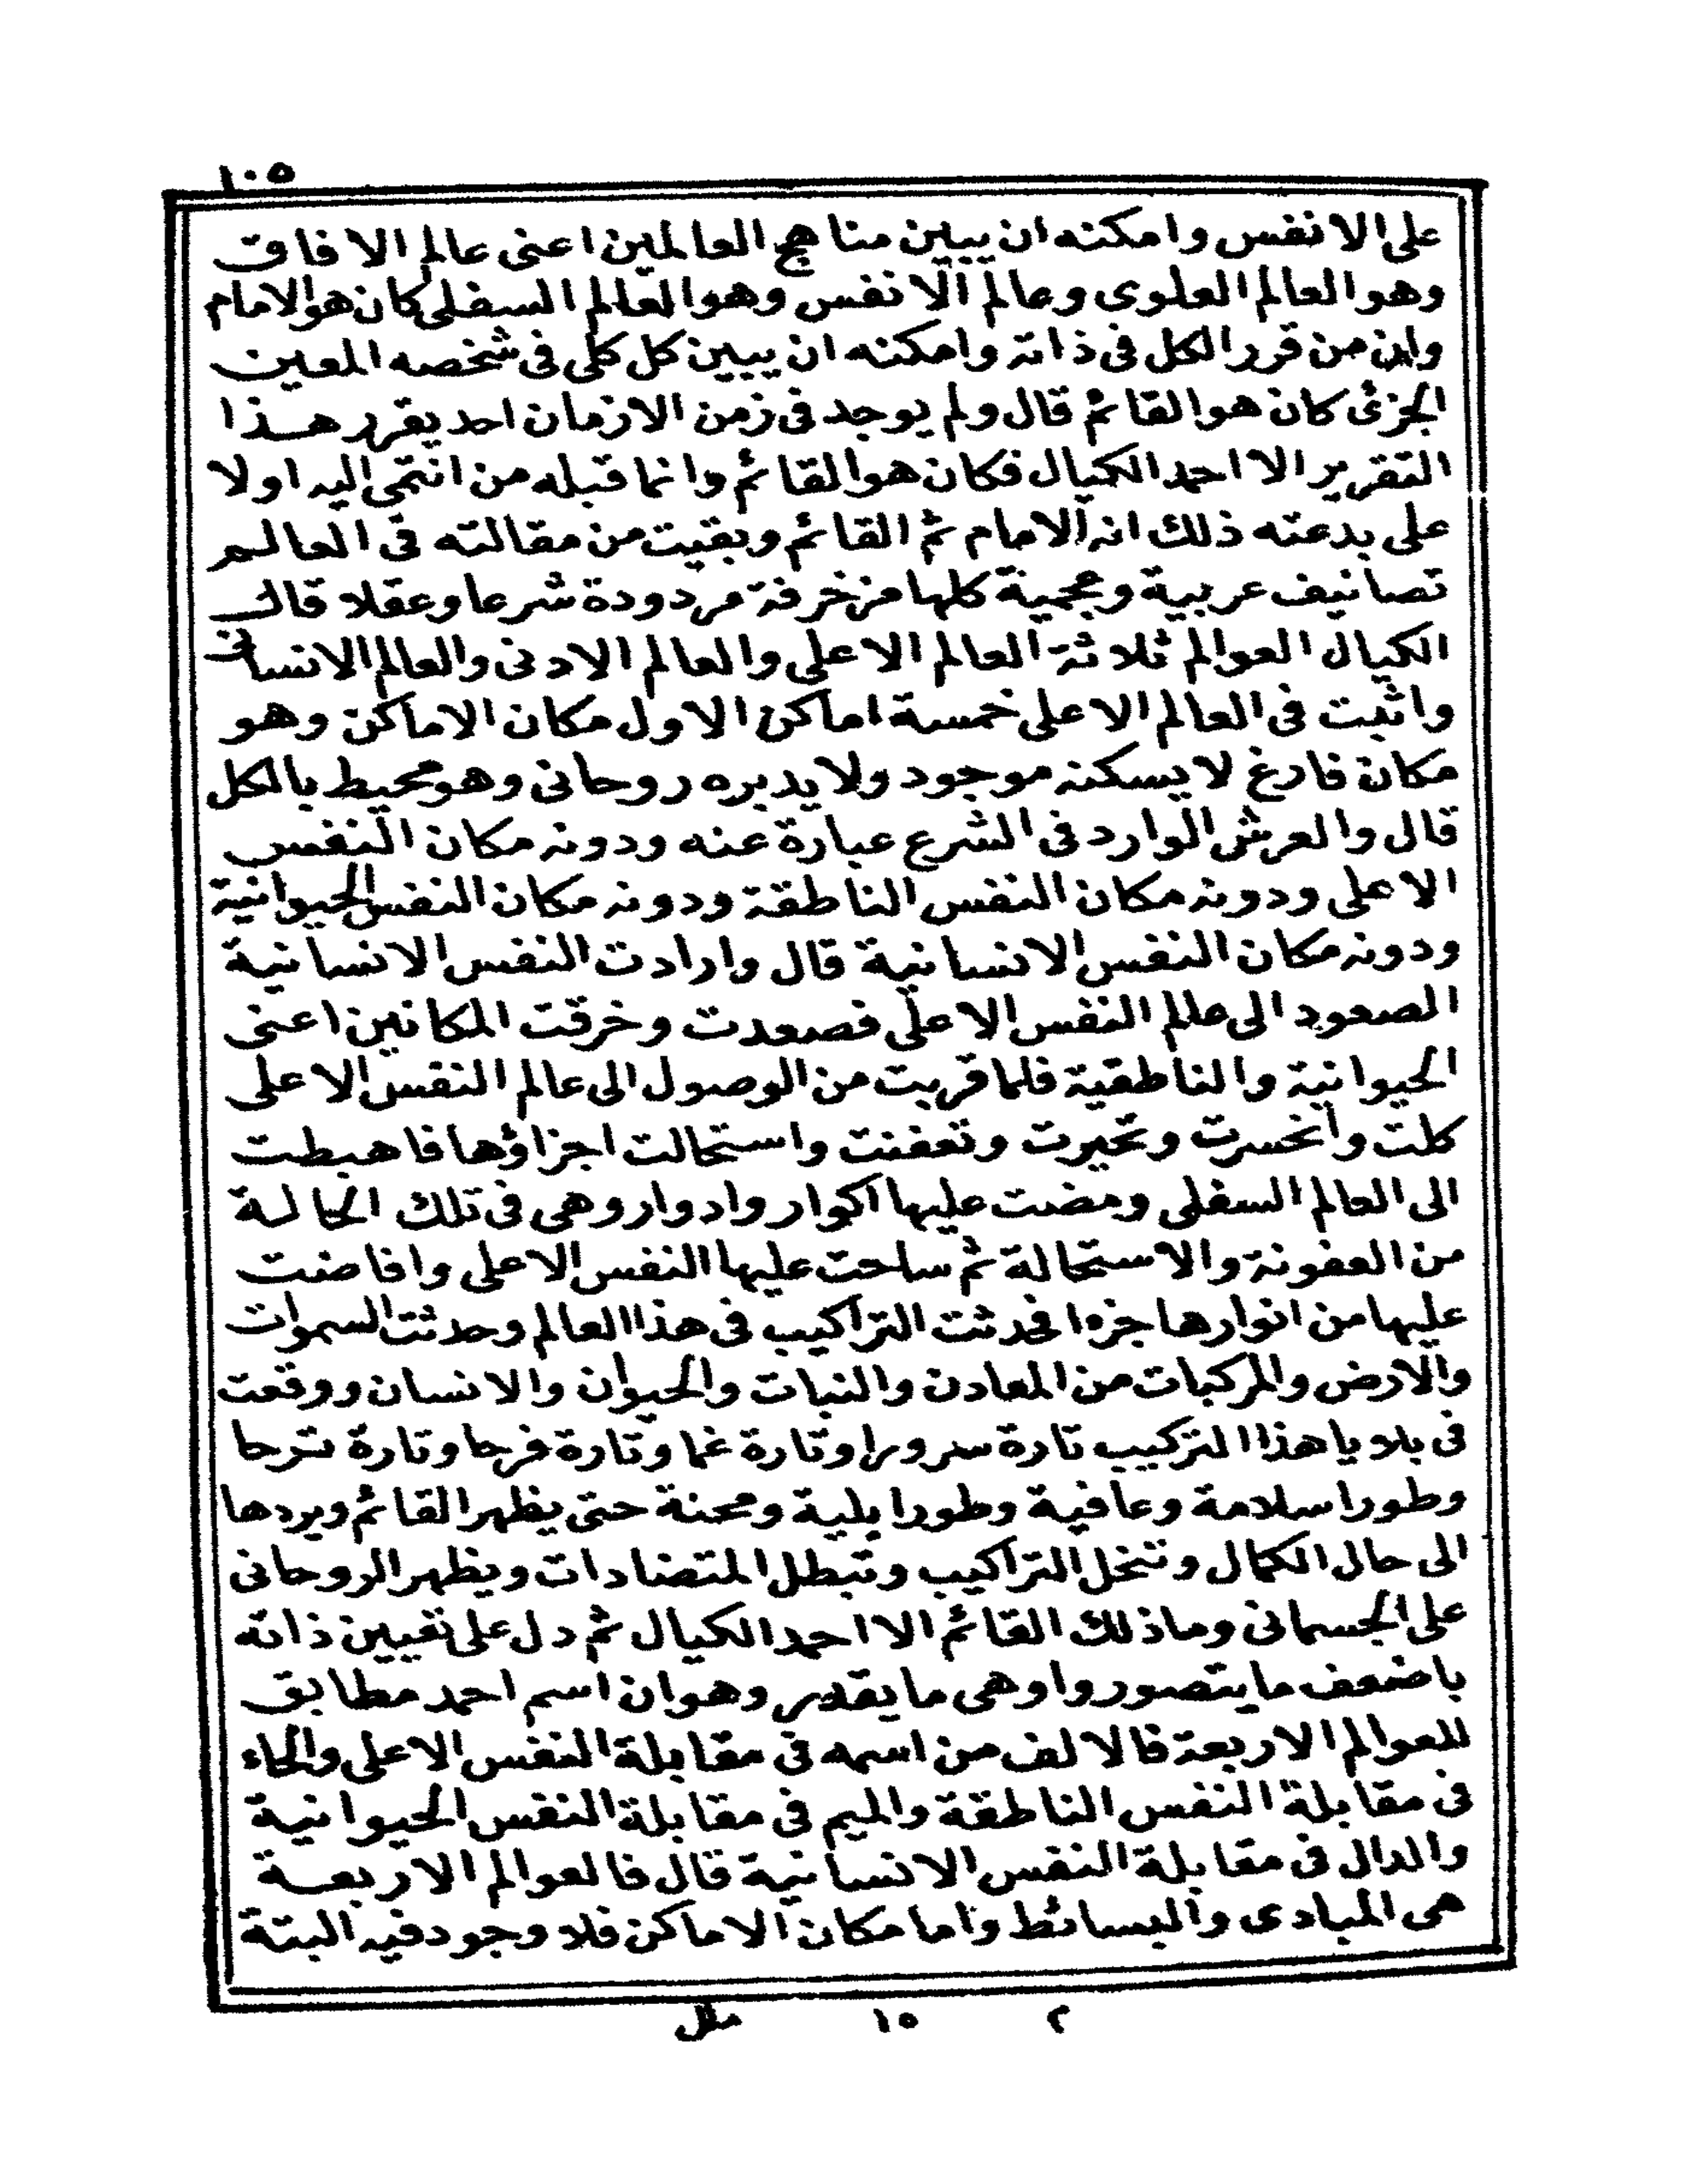 ١٠٥
على الانفس وامكنه ان يبين مناهج العالمين اعنى عالم الافاق
وهو العالم العلوى وعالم الانفس وهو العالم السفلى كان هو الامام
وان من قرر الكل فى ذاته وامكنه ان يبين كل كلى فى شخصه المعين
الجزئى كان هو القائم قال ولم يوجد فى زمن الازمان احد يقرر هذا
التقرير الا احمد الكيال فكان هو القائم وانما قبله من انتمى اليه اولا
على بدعته ذلك انه الامام ثم القائم وبقيت من مقالته فى العالم
تصانيف عربية وعجمية كلها مزخرفة مردودة شرعا وعقلا قال
الكيال العوالم ثلاثة العالم الاعلى والعالم الادنى والعالم الانسانى
واثبت فى العالم الاعلى خمسة اماكن الاول مكان الاماكن وهو
مكان فارغ لا يسكنه موجود ولا يدبره روحانى وهو محيط بالكل
قال والعرش الوارد فى الشرع عبارة عنه ودونه مكان النفس
الاعلى ودونه مكان النفس الناطقة ودونه مكان النفس الحيوانية
ودونه مكان النفس الانسانية قال وارادت النفس الانسانية
الصعود الى عالم النفس الاعلى فصعدت وخرقت المكانين اعنى
الحيوانية والناطقية فلما قربت من الوصول الى عالم النفس الاعلى
كلت وانحسرت وتحيرت وتعفنت واستحالت اجزاؤها فاهبطت
الى العالم السفلى ومضت عليها اكوار وادوار وهى فى تلك الحالة
من العفونة والاستحالة ثم ساحت عليها النفس الاعلى وافاضت
عليها من انوارها جزءا فحدثت التراكيب فى هذا العالم وحدثت السموات
والارض والمركبات من المعادن والنبات والحيوان والانسان ووقعت
فى بلايا هذا التركيب تارة سرورا وتارة غما وتارة فرحا وتارة ترحا
وطورا سلامة وعافية وطورا بلية ومحنة حتى يظهر القائم ويردها
الى حال الكمال وتنحل التراكيب وتبطل المتضادات ويظهر الروحانى
على الجسمانى وما ذلك القائم الا احمد الكيال ثم دل على تعيين ذاته
باضعف ما يتصور واوهى ما يقدر وهو ان اسم احمد مطابق
للعوالم الاربعة فالالف من اسمه فى مقابلة النفس الاعلى والحاء
فى مقابلة النفس الناطقة والميم فى مقابلة النفس الحيوانية
والدال فى مقابلة النفس الانسانية قال فالعوالم الاربعة
هى المبادى والبسائط واما مكان الاماكن فلا وجود فيه البتة
٢ ١٥ ملل